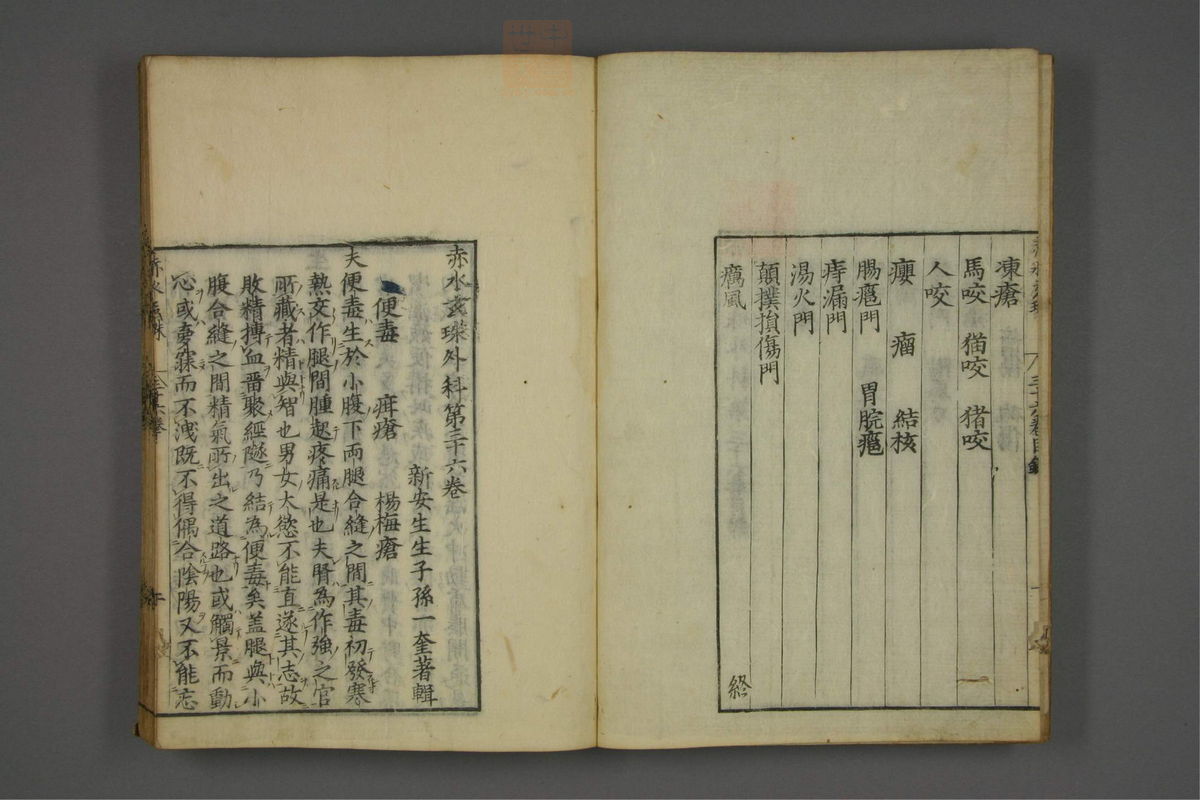 凍瘡
馬咬 猫咬 猪咬
人咬
癭 瘤 結核
腸癰門 胃脘癰
痔漏門
湯火門
顛撲損傷門
癘風
終
赤水玄珠外科第三十六卷
新安生生子孫一奎著輯
便毒 疳瘡 楊梅瘡
夫便毒生於小腹下両腿合縫之間其毒初發寒
熱交作腿間腫起疼痛是也夫腎為作強之官
所藏者精與智也男女大慾不能直遂其志故
敗精搏血畱聚經隧乃結為便毒矣盖腿與小
腹合縫之間精氣所出之道路也或觸景而動
心或夢寐而不洩既不得偶合陰陽又不能忘